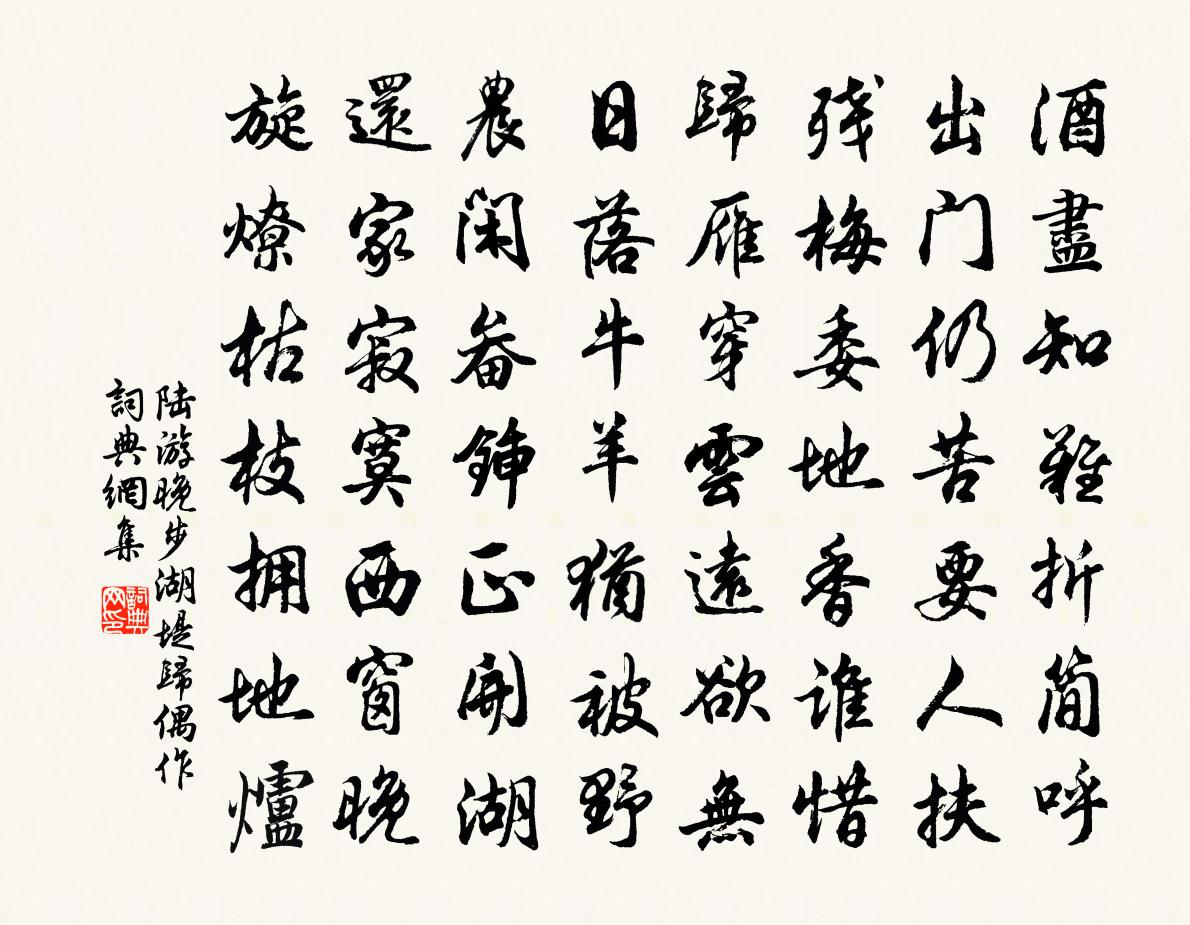 酒盡知難折簡呼
出门仍苦要人扶
残梅委地香谁惜
歸雁穿雲遠欲無
日落牛羊猶被野
農閑畚鍤正開湖
還家寂寞西窗晚
旋燎枯枝拥地爐
陆游晚步湖堤歸偶作
詞典網集
詞典网印